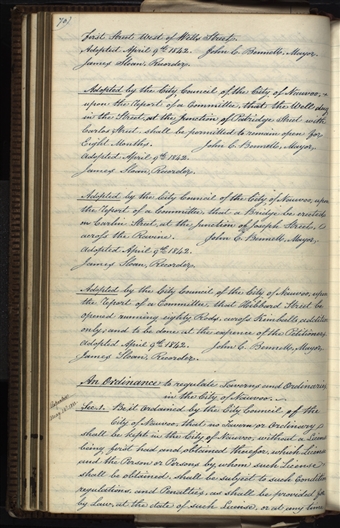 70)
first Street West of Wells Street.
Adopted April 9th 1842. John C. Bennett, Mayor.
James Sloan, Recorder.
Adopted by the City Council of the City of Nauvoo,
upon the Report of a Committee, that the Well dug
in the Street, at the junction of Partridge Street with
Carlos Street shall be permitted to remain open for
Eight Months. John C. Bennett, Mayor.
Adopted April 9th 1842.
James Sloan, Recorder.
Adopted by the City Council of the City of Nauvoo, upon
the Report of a Committee, that a Bridge be erected
in Carlin Street, at the junction of Joseph Street, a-
cross the Ravine. John C. Bennett, Mayor.
Adopted April 9th 1842.
James Sloan, Recorder.
Adopted by the City Council of the City of Nauvoo, upon
the Report of a Committee, that Hibbard Street be
opened running eighty Rods, across Kimball's addition
only, and to be done at the expense of the Petitioners.
Adopted April 9th 1842. John C. Bennett, Mayor.
James Sloan, Recorder.
An Ordinance to regulate Taverns and Ordinaries
in the City of Nauvoo.
Sec. 1. Be it Ordained by the City Council of the
City of Nauvoo, that no Tavern or Ordinary
shall be kept in the City of Nauvoo, without a License
being first had and obtained therefor, which License
and the Person or Persons by whom such License
shall be obtained, shall be subject to such Conditions
regulations and Penalties, as shall be provided for
by Law, at the date of such License, or at any time